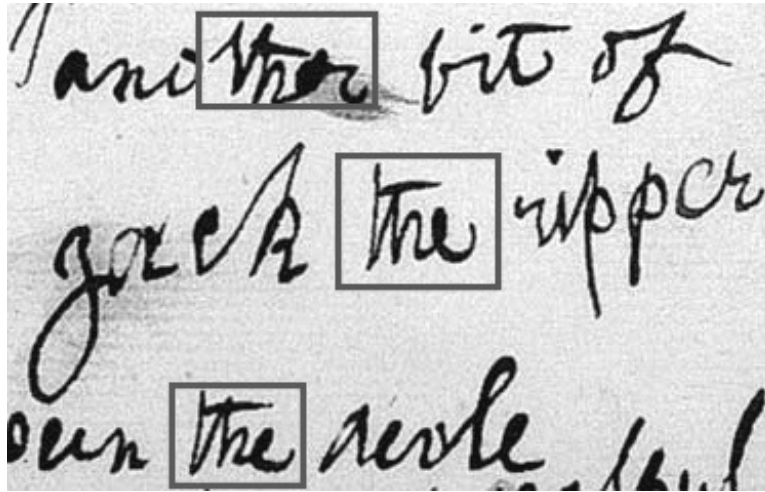 another bit of
Jack the ripper
the devle